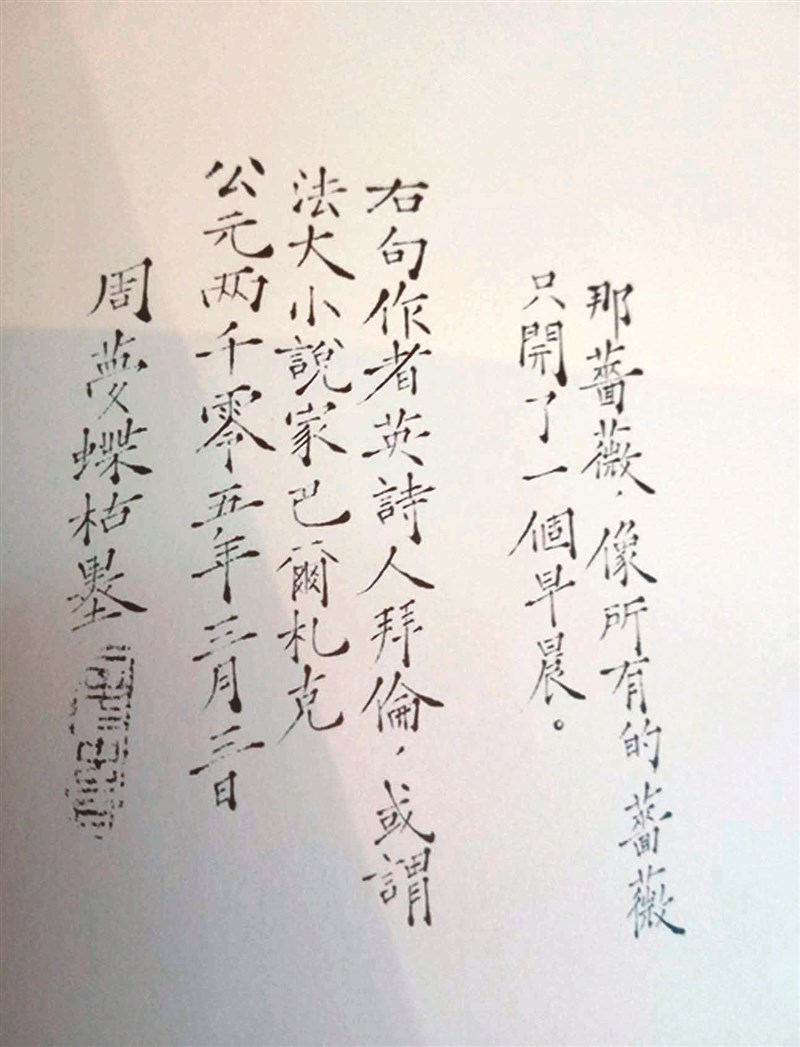 那薔薇，像所有的薔薇
只開了一個早晨。
右句作者英詩人拜倫，或謂
法大小說家巴爾札克
公元两千零五年三月三日
周夢蝶枯墨